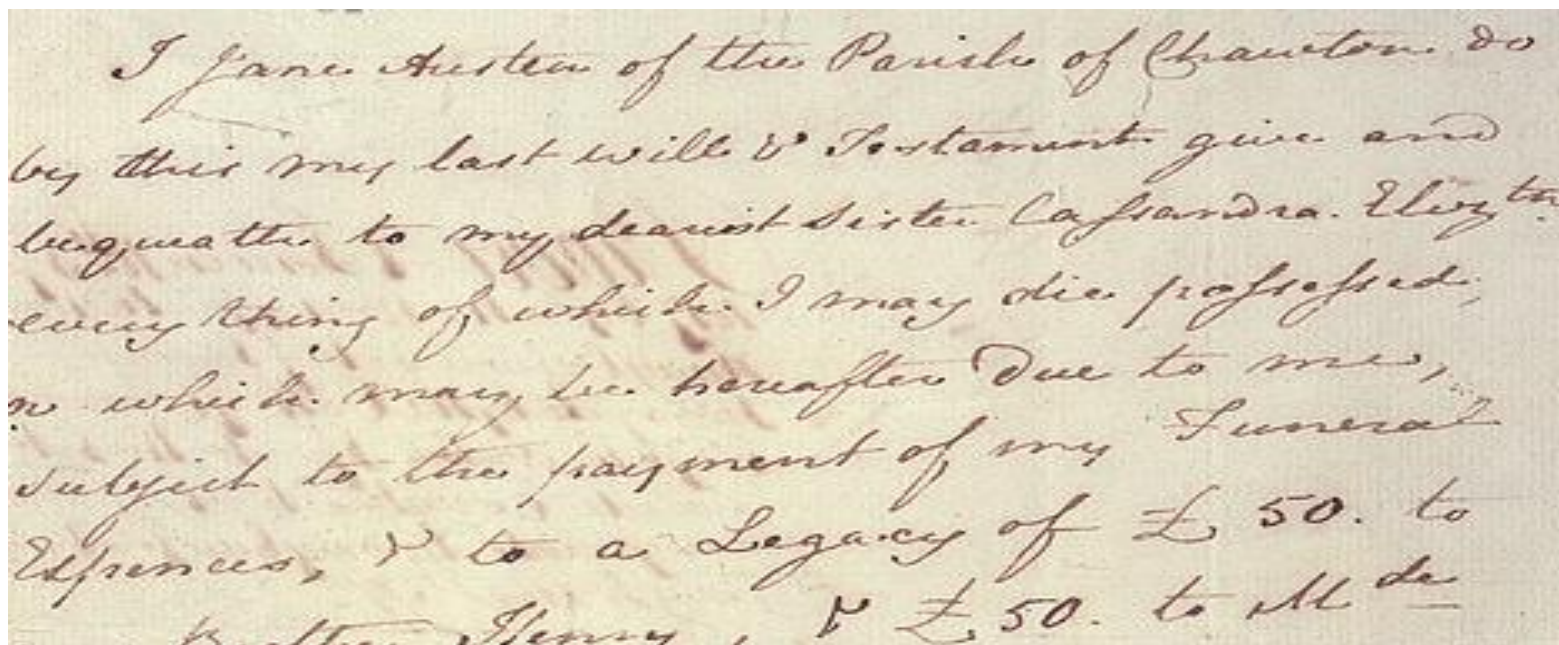 I Jane Austen of the Parish of Chawton do
by this my last will & Testament give and
bequeathe to my dearest Sister Cassandra Elizth
every thing of which I may die possessed,
or which may be hereafter due to me,
subject to the payment of my Funeral
Expences, & to a Legacy of £50. to
Brother Henry, & £50. to Mde